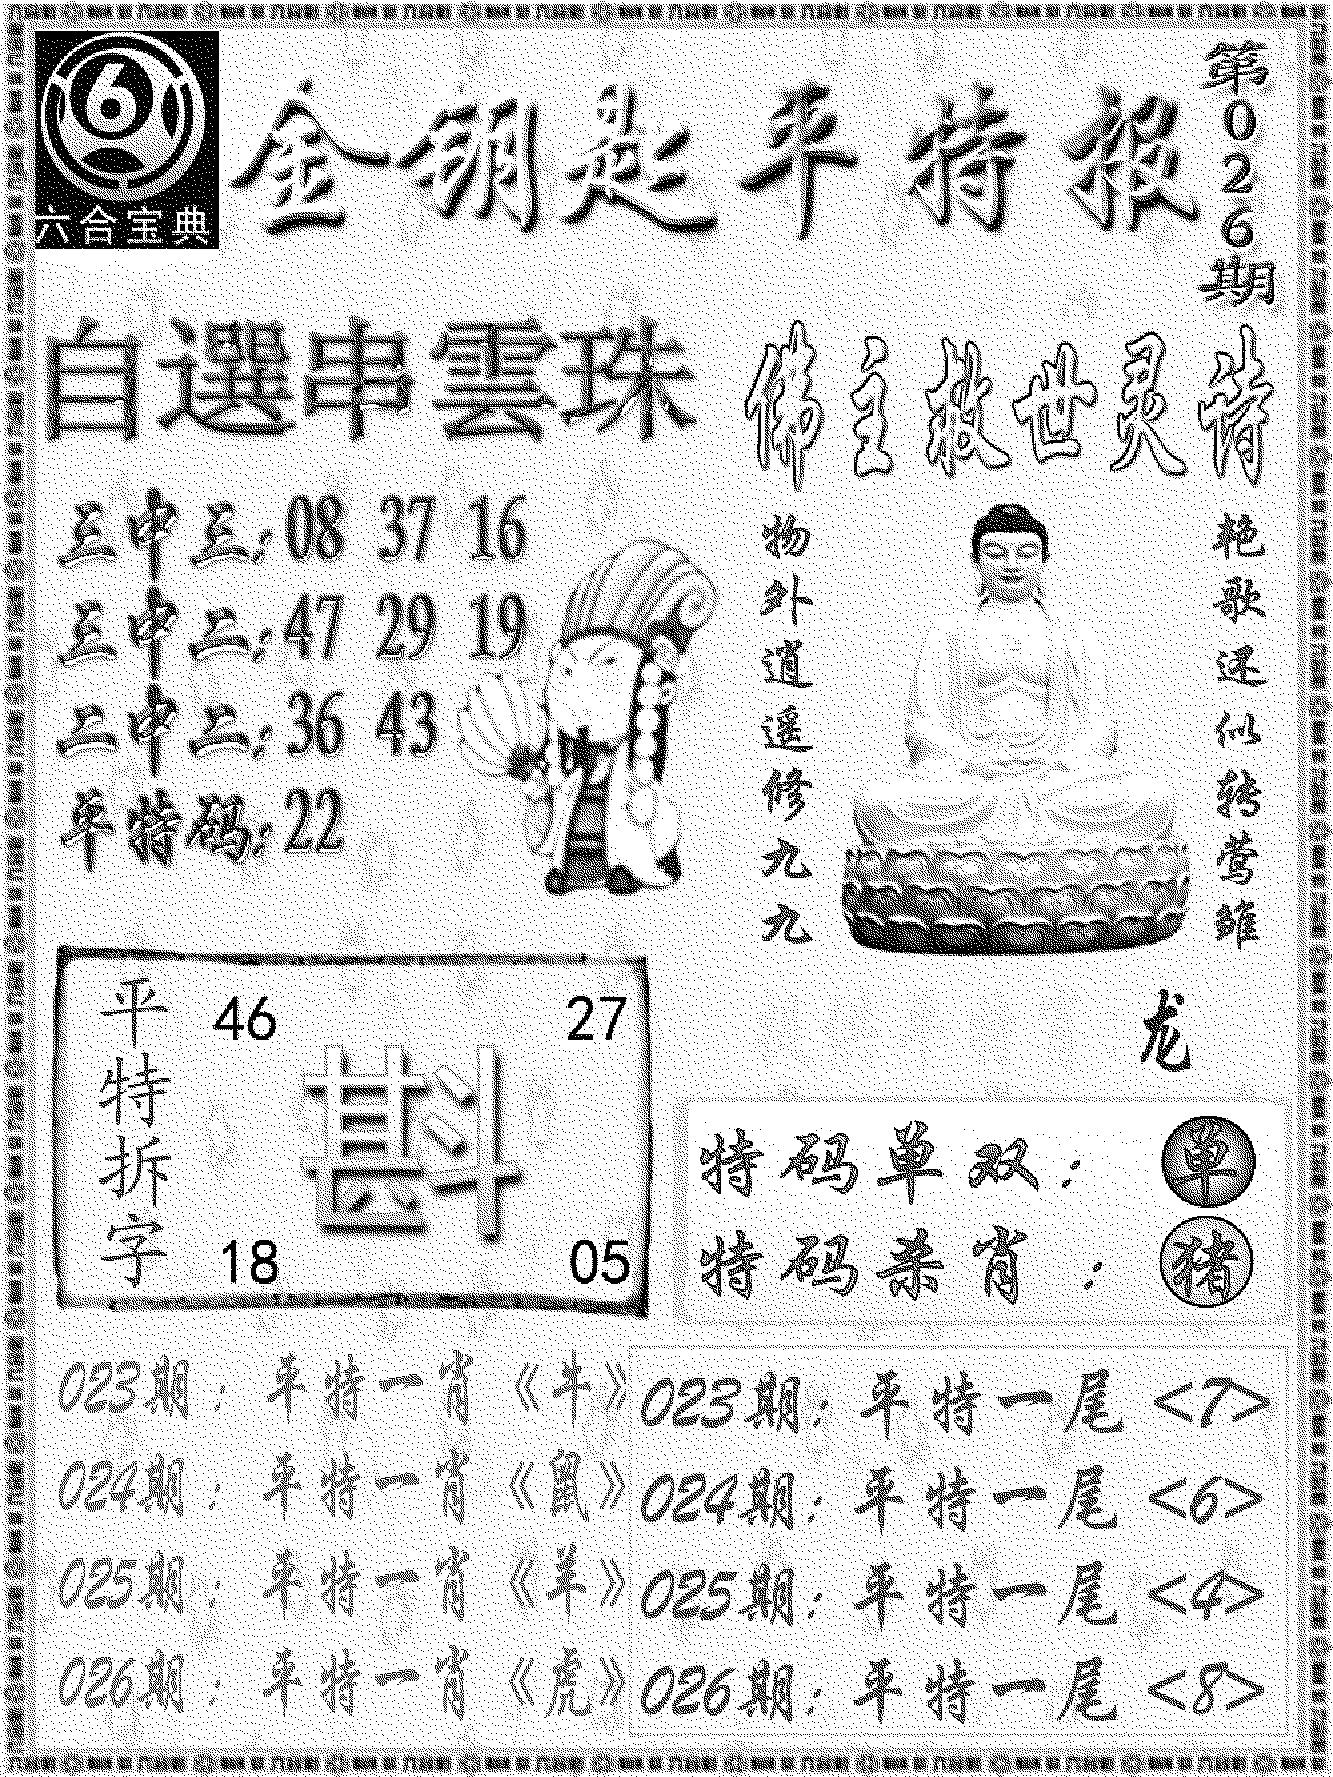 六合宝典
金钥匙平特报
第026期
自選串雲珠
三中三:08 37 16
三中二:47 29 19
二中二:36 43
平特码:22
佛主救世灵诗
艳歌还似转莺雏
物外逍遥修九九
龙
平特拆字
46 27
斟
18 05
特码单双:单
特码杀肖:猪
023期:平特一肖《牛》
024期:平特一肖《鼠》
025期:平特一肖《羊》
026期:平特一肖《虎》
023期:平特一尾<7>
024期:平特一尾<6>
025期:平特一尾<4>
026期:平特一尾<8>